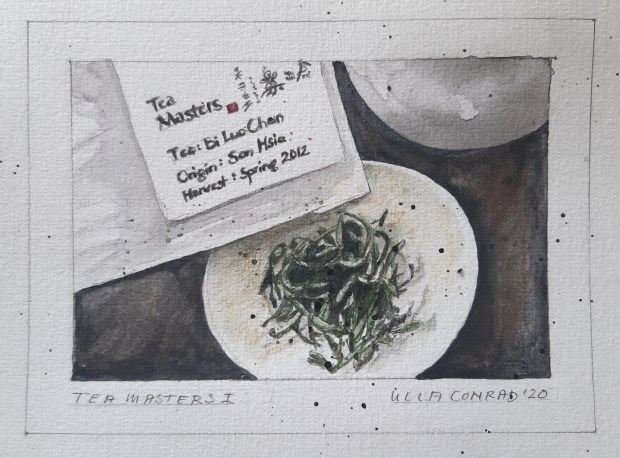 Tea
Masters
Tea: Bi Luo Chun
Origin: San Hsia
Harvest: Spring 2012
TEA MASTERS I
ULLA CONRAD '20